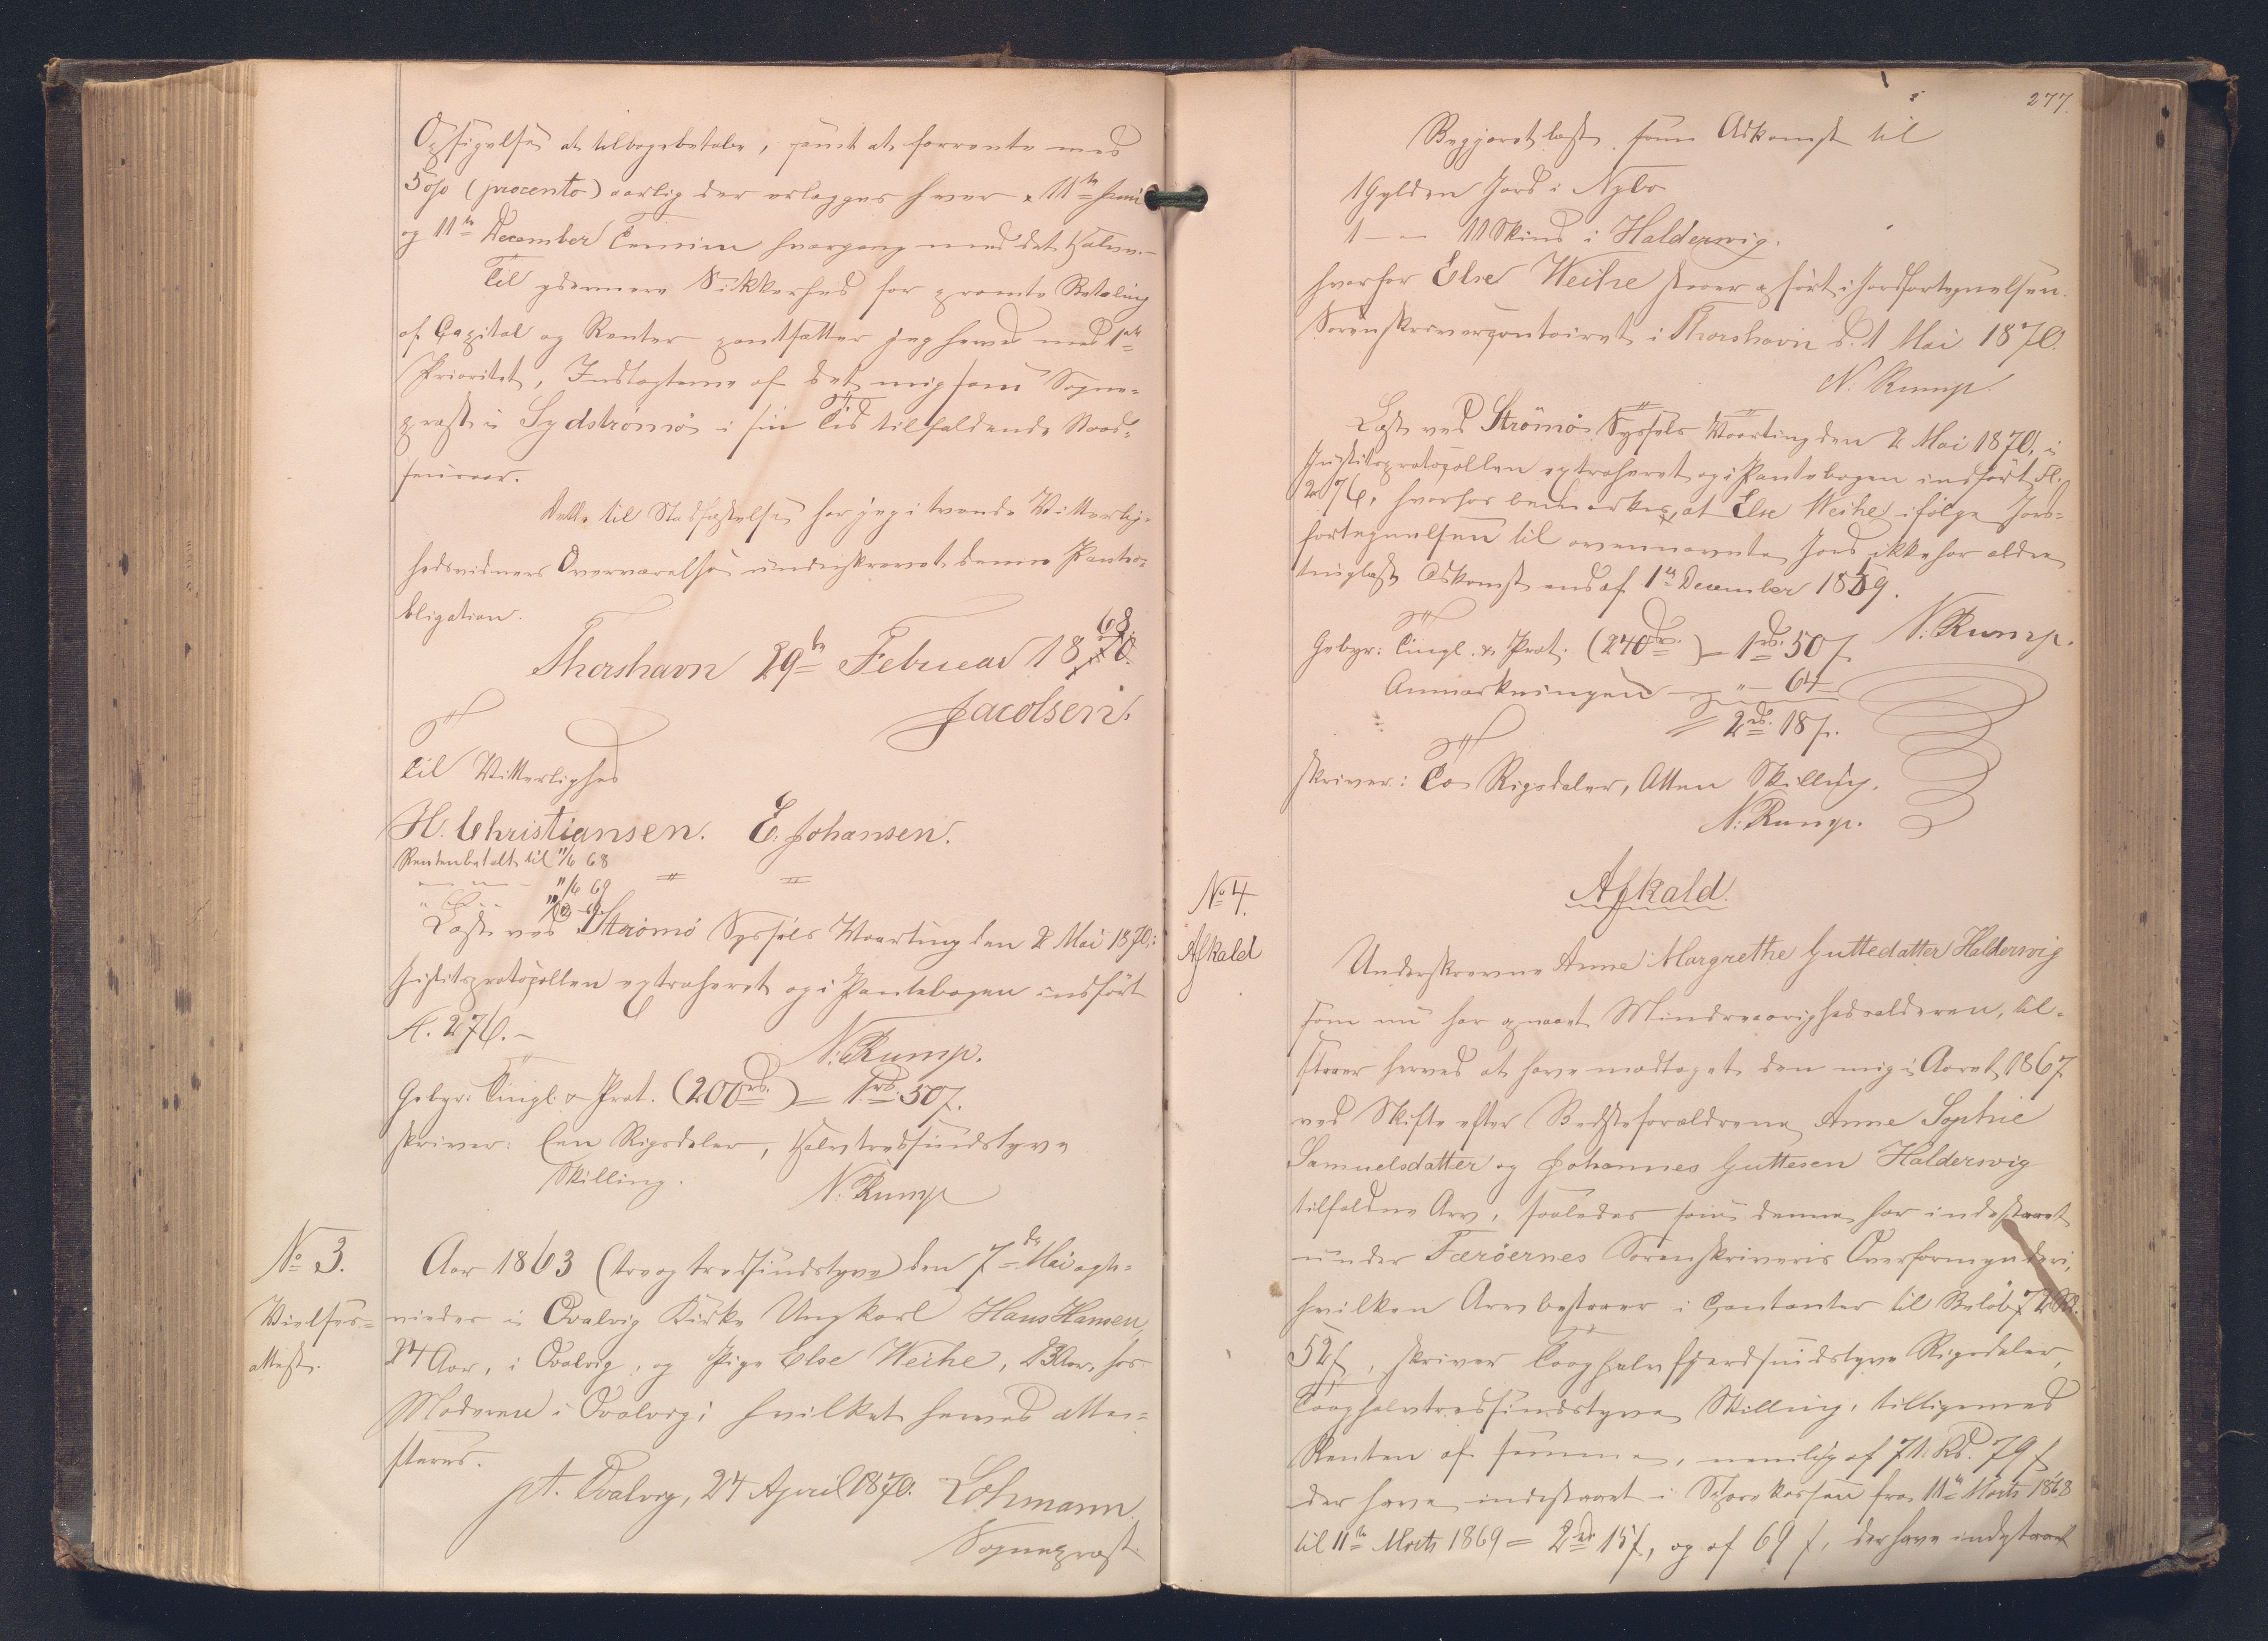 Opsigelse at tilbagebetale, samt at forrente med
5 o/o (procento) aarlig der erlægges hver 11te Juni
og 11te December Termin hvergang med det Halve.-
Til ydermere Sikkerhed for promte Betaling
af Capital og Renter pantsætter jeg herved med 1ste
Prioritet, Indtægterne af det mig som Sogne-
præst i Sydstrømø i sin Tid tilfaldende Naad-
sensaar.
Dette til Stadfæstelse har jeg i tvende Vitterlig-
hedsvidners Overværelse underskrevet denne Panteo-
bligation.
Thorshavn 29de Februar 1868.
Jacobsen.
Til Vitterlighed
H. Christiansen. E. Johansen.
Renten betalt til 11/6 68
— — 11/6 69
Læst ved Strømø Syssels Vaarting den 2 Mai 1870, i
Justitsprotocollen extraheret og i Pantebogen indført
Fl. 276.-
N. Rump.
Gebyr: Tingl. & Prot. (200rd.) = 1rd. 50ß.
skriver: Een Rigsdaler, Halvtredsindstyve
Skilling.
N. Rump
No 3.
Vielses-
attest.
Aar 1863 (tre og tredsindstyve) den 7de Mai ægte-
viedes i Qvalvig Kirke Ungkarl Hans Hansen,
24 Aar, i Qvalvig, og Pige Else Weihe, 23 Aar, hos
Moderen i Qvalvig; hvilket herved atte-
steres.
pt. Qvalvig, 24 April 1870. Lohmann
Sognepræst.
277.
Begjæret læst som Adkomst til
1 Gylden Jord i Nybo
1 — 11 Skind i Haldersvig.
hvorfor Else Weihe staaer opført i Jordfortegnelsen.
Sorenskrivercontoiret i Thorshavn d. 1 Mai 1870.
N. Rump
Læst ved Strømø Syssels Vaarting den 2 Mai 1870, i
Justitsprotocollen extraheret og i Pantebogen indført Fl.
276, hvorhos bemærkes, at Else Weihe ifølge Jord-
fortegnelsen til ovennævnte Jord ikke har ældre
tinglæst Adkomst end af 1ste December 1859.
N. Rump.
Gebyr: Tingl. & Prot. (240rd.) = 1rd. 50ß
Anmærkningen — " — 64 —
= 2rd. 18ß.
skriver: To Rigsdaler, Atten Skilling.
N. Rump.
No 4.
Afkald
Afkald.
Underskrevne Anne Margrethe Guttedatter Haldersvig
som nu har opnaaet Mindreaarighedsalderen, til-
staaer herved at have modtaget den mig i Aaret 1867
ved Skifte efter Bedsteforældrene Anne Sophie
Samuelsdatter og Johannes Guttesen Haldersvig
tilfaldne Arv, saaledes som denne har indestaaet
under Færøernes Sorenskriveris Overformynderi,
hvilken Arv bestaaer i Contanter til Beløb 72 Rd.
52ß, skriver To og halvfjerdsindstyve Rigsdaler,
To og halvtredsindstyve Skilling, tilligemed
Renten af samme, nemlig af 71 Rd. 79ß
der have indestaaet i Sparekassen fra 11te Marts 1868
til 11te Marts 1869 = 2rd 15ß, og af 69ß, der have indestaaet